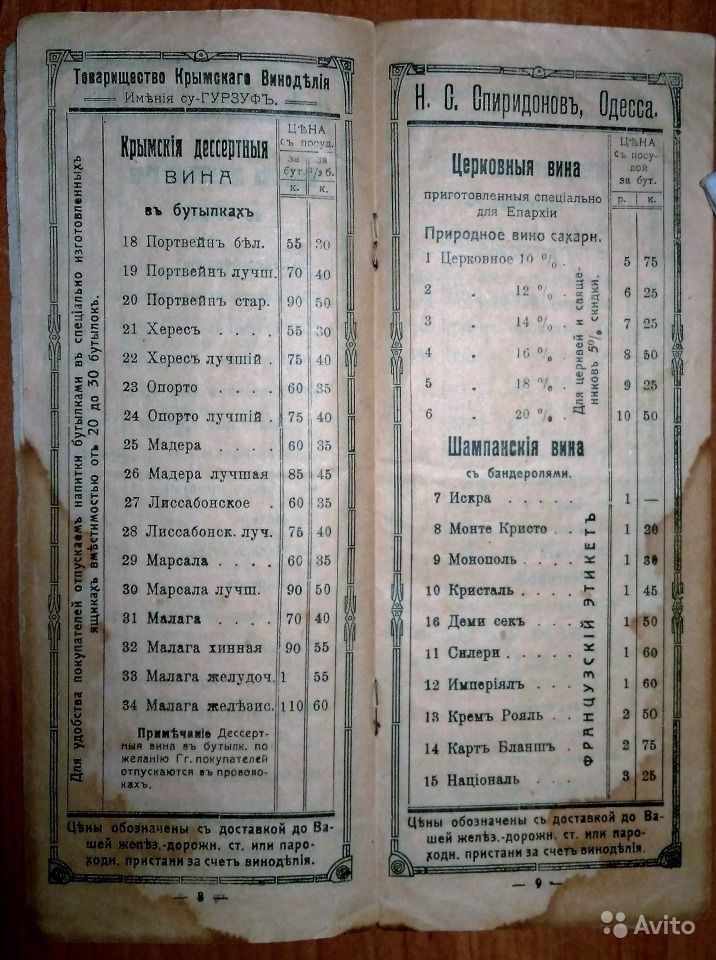 Товарищество Крымскаго Винодѣлія
Имѣнія су-ГУРЗУФЪ.
Для удобства покупателей отпускаемъ напитки бутылками въ спеціально изготовленныхъ
ящикахъ вмѣстимостью отъ 20 до 30 бутылокъ.
Крымскія дессертныя
ВИНА
въ бутылкахъ
ЦѢНА
съ посуд.
за бут. за 1/2 б.
к. к.
18 Портвейнъ бѣл. 55 30
19 Портвейнъ лучш. 70 40
20 Портвейнъ стар. 90 50
21 Хересъ . . . . 55 30
22 Хересъ лучшій . 75 40
23 Опорто . . . . 60 35
24 Опорто лучшій . 75 40
25 Мадера . . . . 60 35
26 Мадера лучшая 85 45
27 Лиссабонское . 60 35
28 Лиссабонск. луч. 75 40
29 Марсала . . . . 60 35
30 Марсала лучш. 90 50
31 Малага . . . . 70 40
32 Малага хинная 90 55
33 Малага желудоч. 1 55
34 Малага желѣзис. 110 60
Примѣчаніе Дессерт-
ныя вина въ бутылк. по
желанію Гг. покупателей
отпускаются въ проволо-
кахъ.
Цѣны обозначены съ доставкой до Ва-
шей желѣз.-дорожн. ст. или паро-
ходн. пристани за счетъ винодѣлія.
— 8 —
Н. С. Спиридоновъ, Одесса.
Церковныя вина
приготовленныя спеціально
для Епархіи
Природное вино сахарн.
ЦѢНА
съ посу-
дой
за бут.
р. к.
1 Церковное 10 % . 5 75
2 „ 12 % . 6 25
3 „ 14 % . 7 25
4 „ 16 % . 8 50
5 „ 18 % . 9 25
6 „ 20 % . 10 50
Для церквей и свяще-
никовъ 5% скидки.
Шампанскія вина
съ бандеролями.
7 Искра . . . . . 1 —
8 Монте Кристо . . 1 20
9 Монополь . . . 1 30
10 Кристаль . . . 1 45
16 Деми секъ . . . 1 50
11 Силери . . . . 1 60
12 Имперіялъ . . . 1 60
13 Кремъ Рояль . . 2 50
14 Картъ Бланшъ . . 2 75
15 Націоналъ . . . 3 25
ФРАНЦУЗСКІЙ ЭТИКЕТЪ
Цѣны обозначены съ доставкой до Ва-
шей желѣз.-дорожн. ст. или паро-
ходн. пристани за счетъ винодѣлія.
— 9 —
Avito